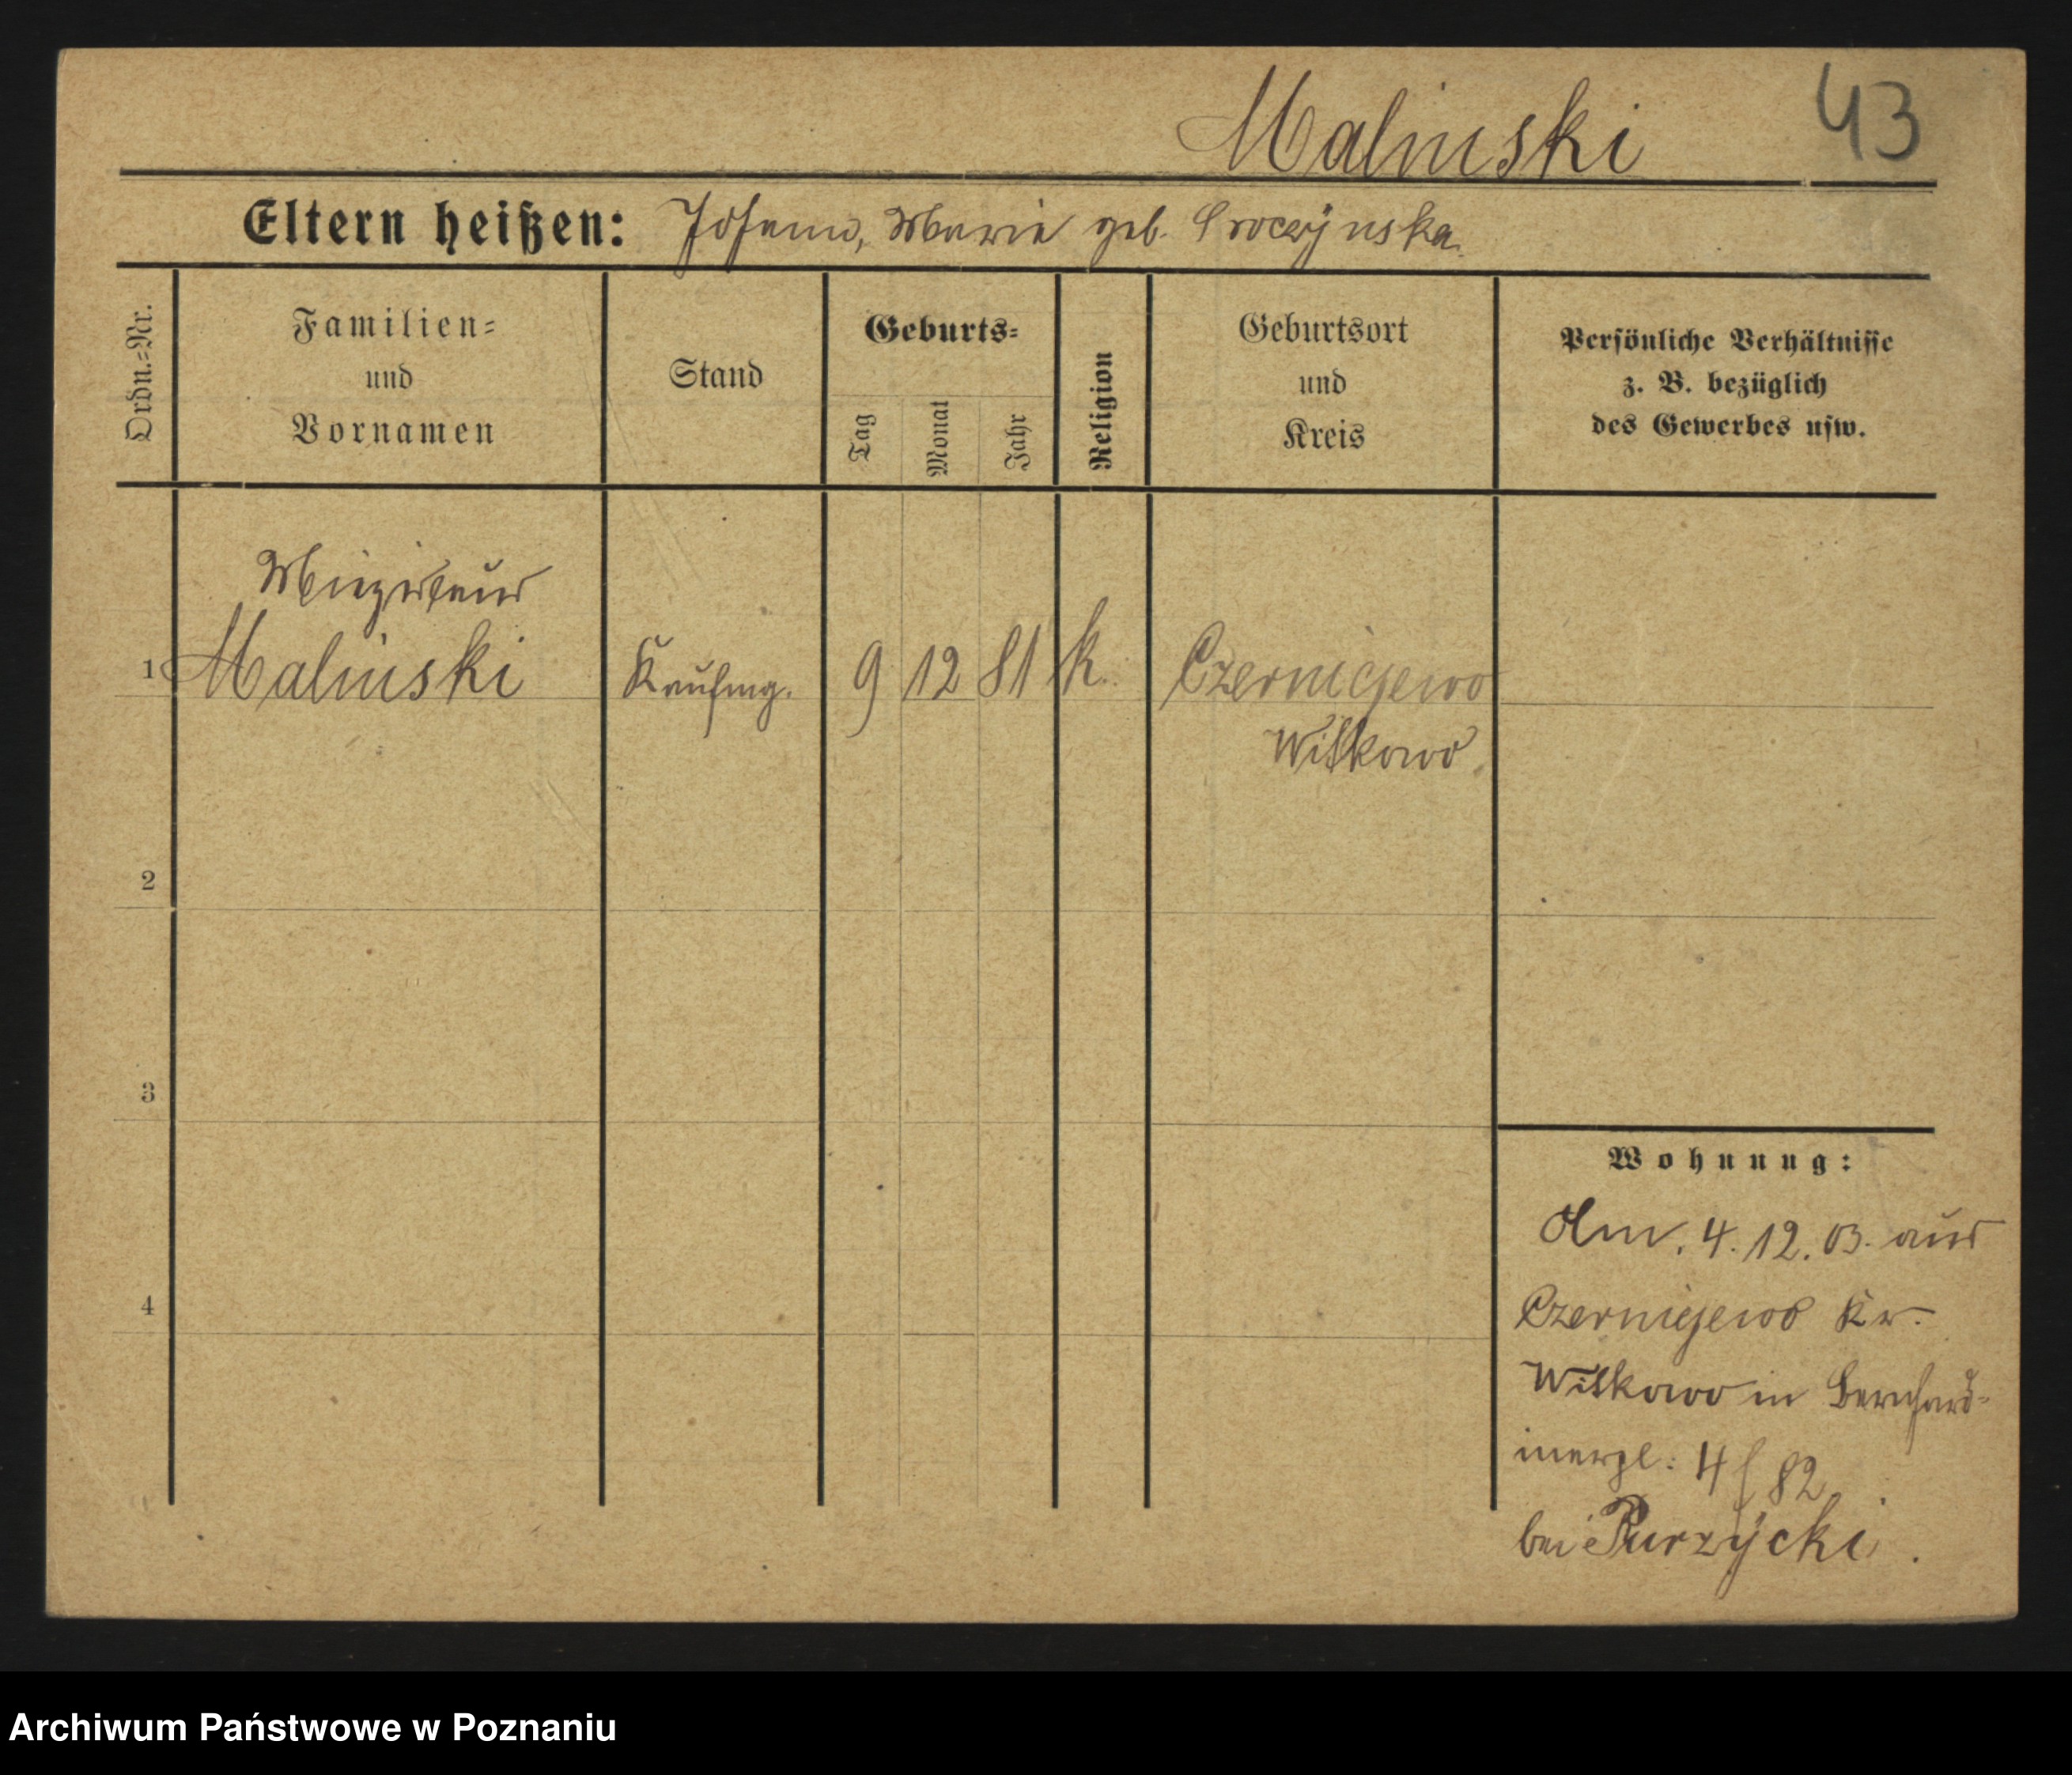 Malinski 43
Eltern heißen: Johann, Marie geb.
Ordn.=Nr.
Familien=
und
Vornamen
Stand
Geburts=
Tag
Monat
Jahr
Religion
Geburtsort
und
Kreis
Persönliche Verhältnisse
z. B. bezüglich
des Gewerbes usw.
1 Malinski Kaufmg. 9 12 81 k. Czerniejewo
Witkowo
2
3
4
Wohnung:
Am. 4. 12. 03. aus
Czerniejewo Kr.
Witkowo in Bernhard-
inerpl: 4 82
bei Purzycki.
Archiwum Państwowe w Poznaniu